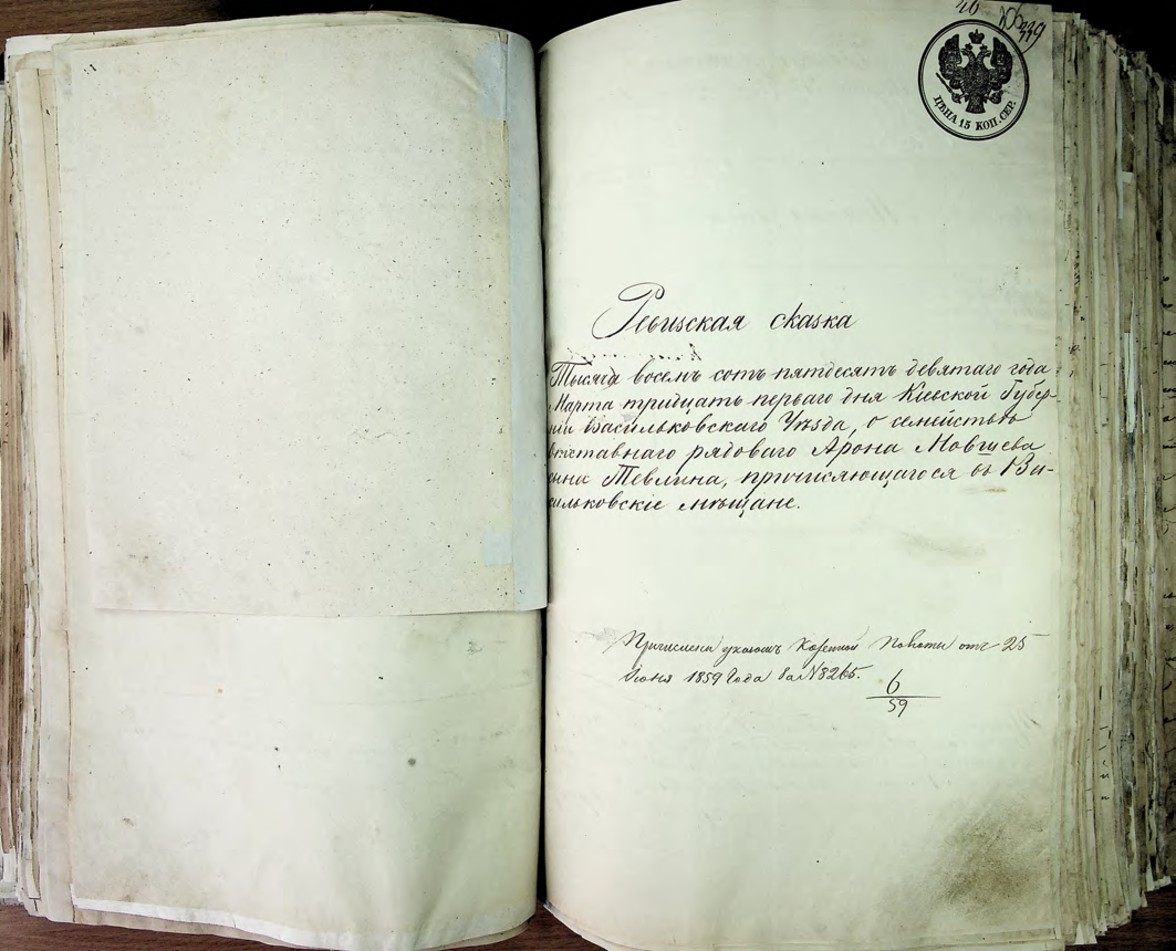 26
339
ЦѢНА 15 КОП. СЕР.
Ревизская сказка
Тысяча восемь сотъ пятдесятъ девятаго года
Марта тридцать перваго дня Кіевской Губер-
ніи Васильковскаго Уѣзда, о семействѣ
отставнаго рядоваго Арона Мовшева
сына Тевлина, причисляющагося въ Ва-
сильковскіе мѣщане.
Причислены указомъ Казенной Палаты отъ 25
Іюня 1859 Года За №8265.
6
59